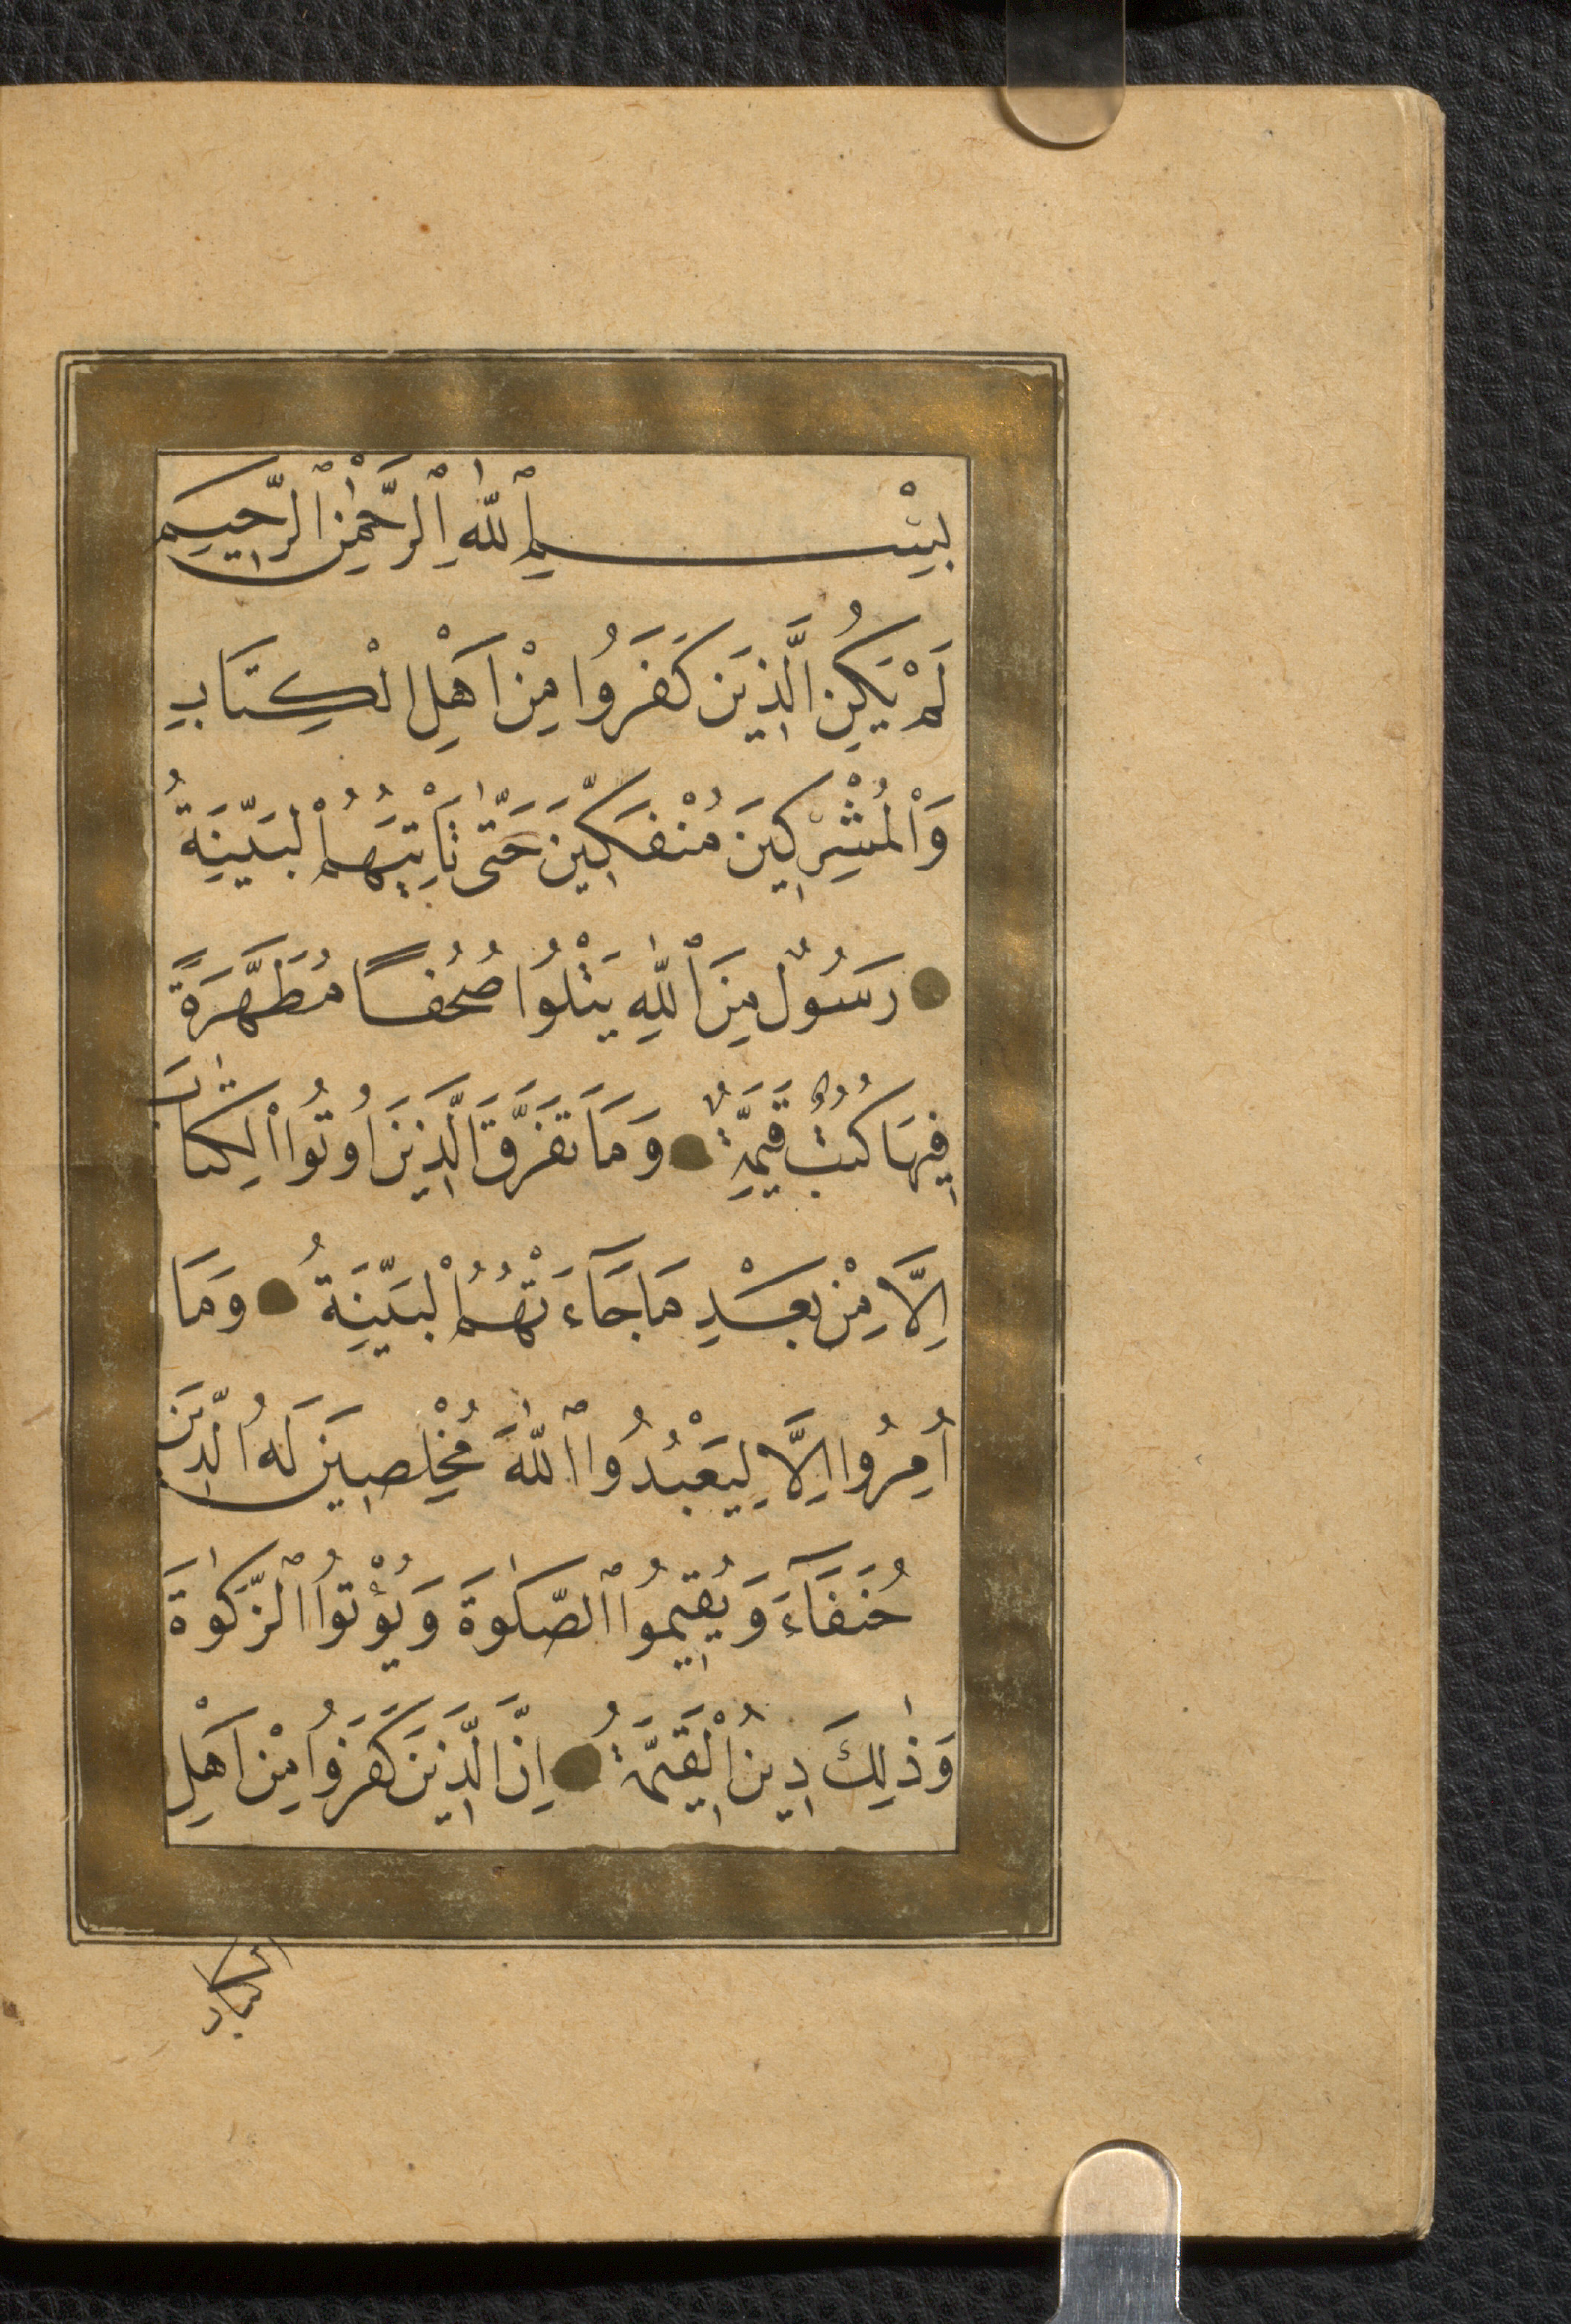 بِسْمِ ٱللّٰهِ ٱلرَّحْمٰنِ ٱلرَّحِيمِ
لَمْ يَكُنِ الَّذِينَ كَفَرُوا مِنْ اَهْلِ الْكِتَابِ
وَالْمُشْرِكِينَ مُنْفَكِّينَ حَتّٰى تَاْتِيَهُمُ الْبَيِّنَةُ
رَسُولٌ مِنَ ٱللّٰهِ يَتْلُوا صُحُفًا مُطَهَّرَةً
فِيهَا كُتُبٌ قَيِّمَةٌ وَمَا تَفَرَّقَ الَّذِينَ اُوتُوا الْكِتَابَ
اِلَّا مِنْ بَعْدِ مَا جَآءَتْهُمُ الْبَيِّنَةُ وَمَا
اُمِرُوا اِلَّا لِيَعْبُدُوا ٱللّٰهَ مُخْلِصِينَ لَهُ الدِّينَ
حُنَفَآءَ وَيُقِيمُوا ٱلصَّلٰوةَ وَيُؤْتُوا ٱلزَّكٰوةَ
وَذٰلِكَ دِينُ الْقَيِّمَةِ اِنَّ الَّذِينَ كَفَرُوا مِنْ اَهْلِ
الكتاب